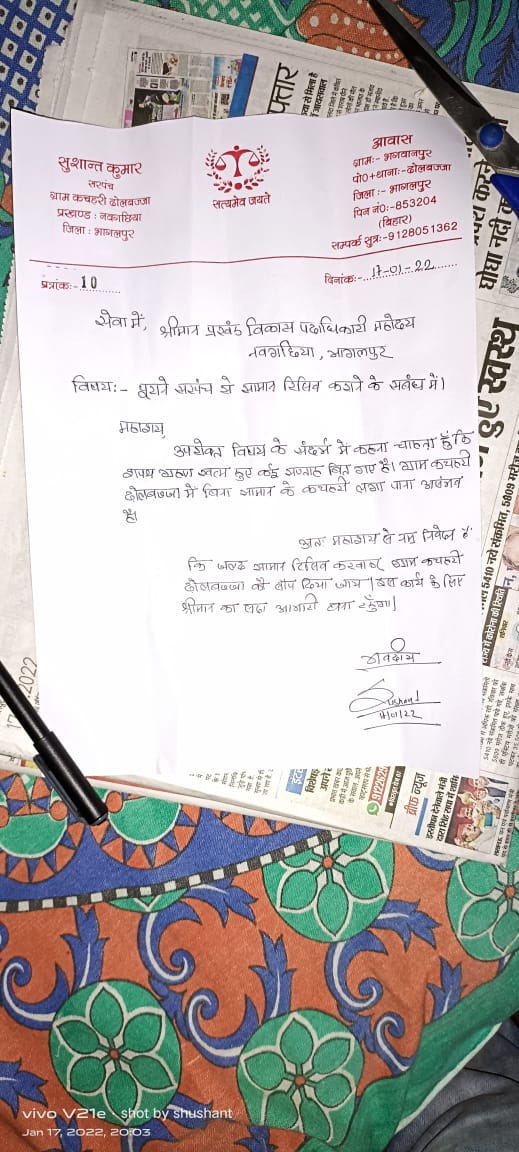 सुशान्त कुमार
सरपंच
ग्राम कचहरी ढोलबज्जा
प्रखण्ड : नवगछिया
जिला : भागलपुर
सत्यमेव जयते
आवास
ग्राम:- भगवानपुर
पो०+थाना:-ढोलबज्जा
जिला :- भागलपुर
पिन नं०:-853204
(बिहार)
सम्पर्क सुत्र:-9128051362
पत्रांक:- 10
दिनांक:- 17-01-22
सेवा में, श्रीमान प्रखंड विकास पदाधिकारी महोदय
नवगछिया, भागलपुर
विषय:- पुराने सरपंच से सामान रिलिव कराने के संबंध में।
महाशय,
उपरोक्त विषय के संदर्भ में कहना चाहता हूँ कि
शपथ ग्रहण खत्म हुए कई सप्ताह बित गए है। ग्राम कचहरी
ढोलबज्जा में बिना सामान के कचहरी लगा पाना असंभव
है।
अतः महाशय से नम्र निवेदन है
कि जल्द सामान रिलिव करवाकर ग्राम कचहरी
ढोलबज्जा को सौंप दिया जाय। इस कार्य के लिए
श्रीमान का सदा आभारी बना रहूँगा।
भवदीय
Sushant
17/01/22
फ्तार
घोघा नदी
हुए स्वस्थ
5410 नये संक्रमित, 5808 मरीज
राज्य में कोरोना की स्थिति
ब्रीफ न्यूज
2022
vivo V21e · shot by shushant
Jan 17, 2022, 20:03